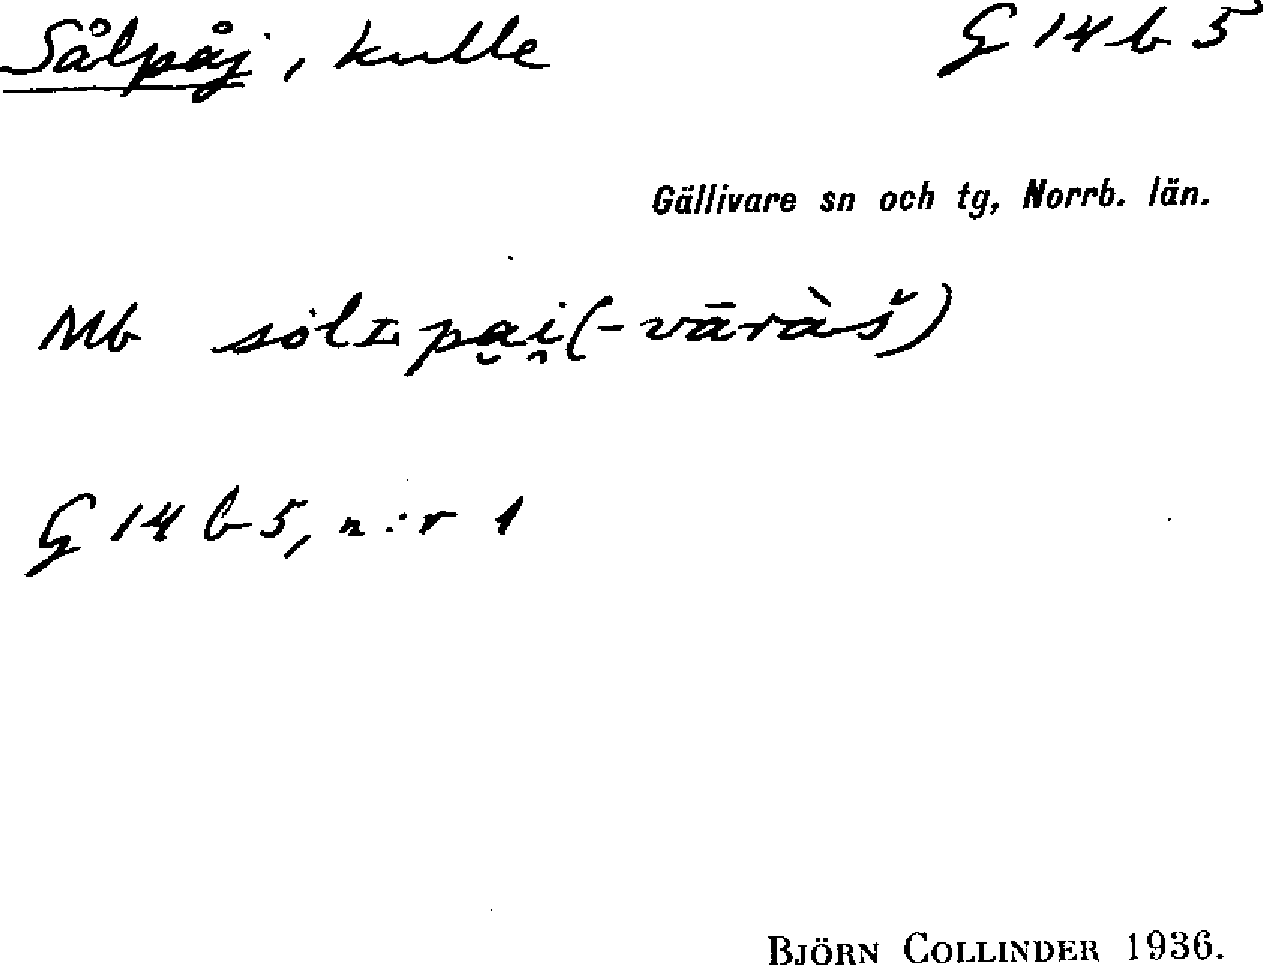 Sålpåj, kulle G 14 b 5
Gällivare sn och tg, Norrb. län.
Mb sȯlɪpa̮i̭(-vāràš)
G 14 b 5, n:r 1
BJÖRN COLLINDER 1936.